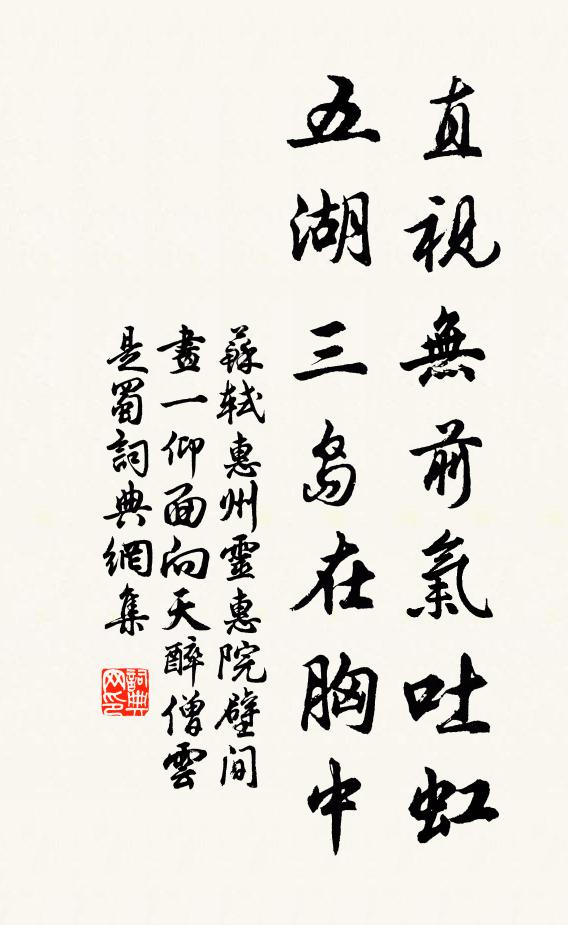 直視無前氣吐虹
五湖三島在胸中
蘇軾惠州靈惠院壁間
畫一仰面向天醉僧雲
是蜀詞典網集
詞典网印